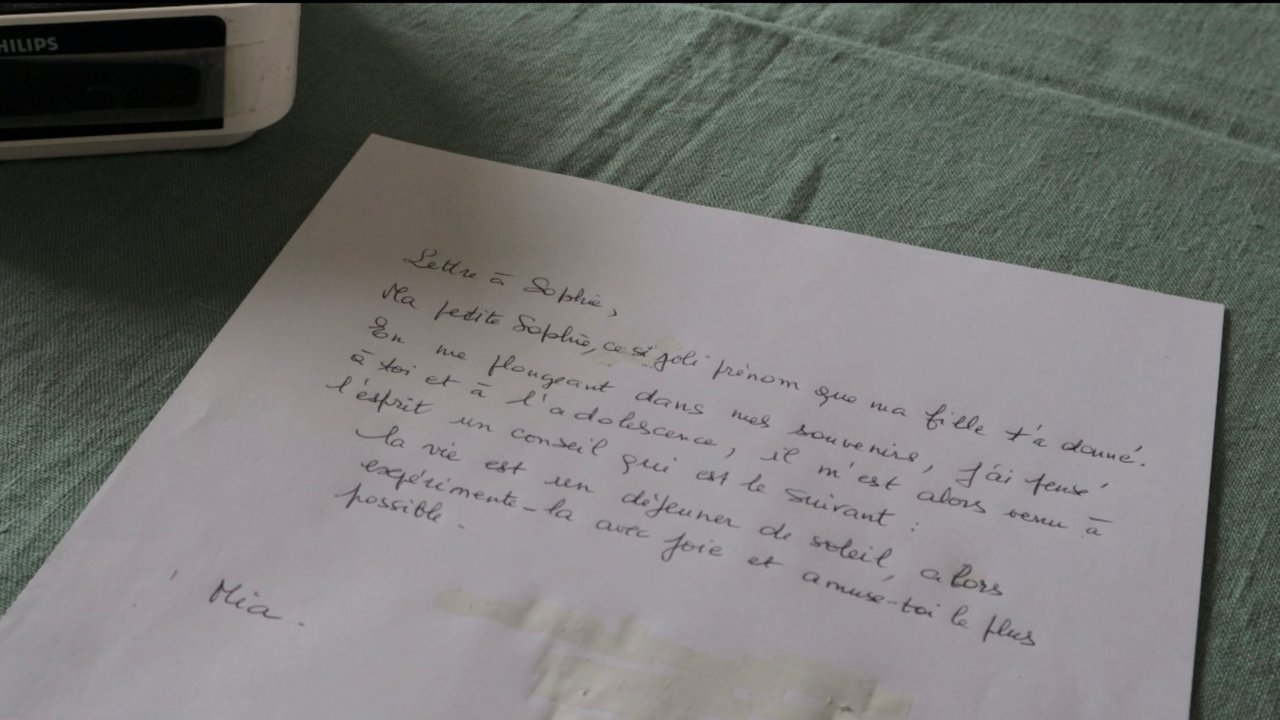 PHILIPS
Lettre à Sophie,
Ma petite Sophie, ce si joli prénom que ma fille t'a donné.
En me plongeant dans mes souvenirs, j'ai pensé
à toi et à l'adolescence, il m'est alors venu à
l'esprit un conseil qui est le suivant :
la vie est un déjeuner de soleil, alors
expérimente-la avec joie et amuse-toi le plus
possible.
Mia.